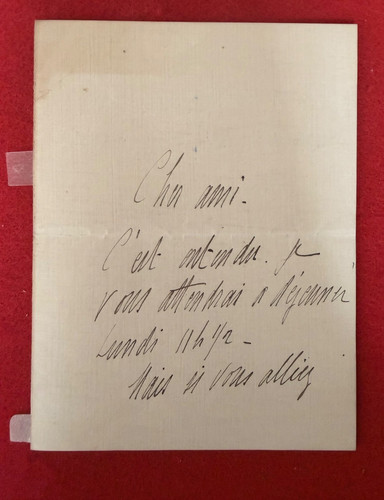 Cher ami -
C'est entendu. je
vous attendrai à déjeuner
Lundi 11 h 1/2 -
Mais si vous alliez